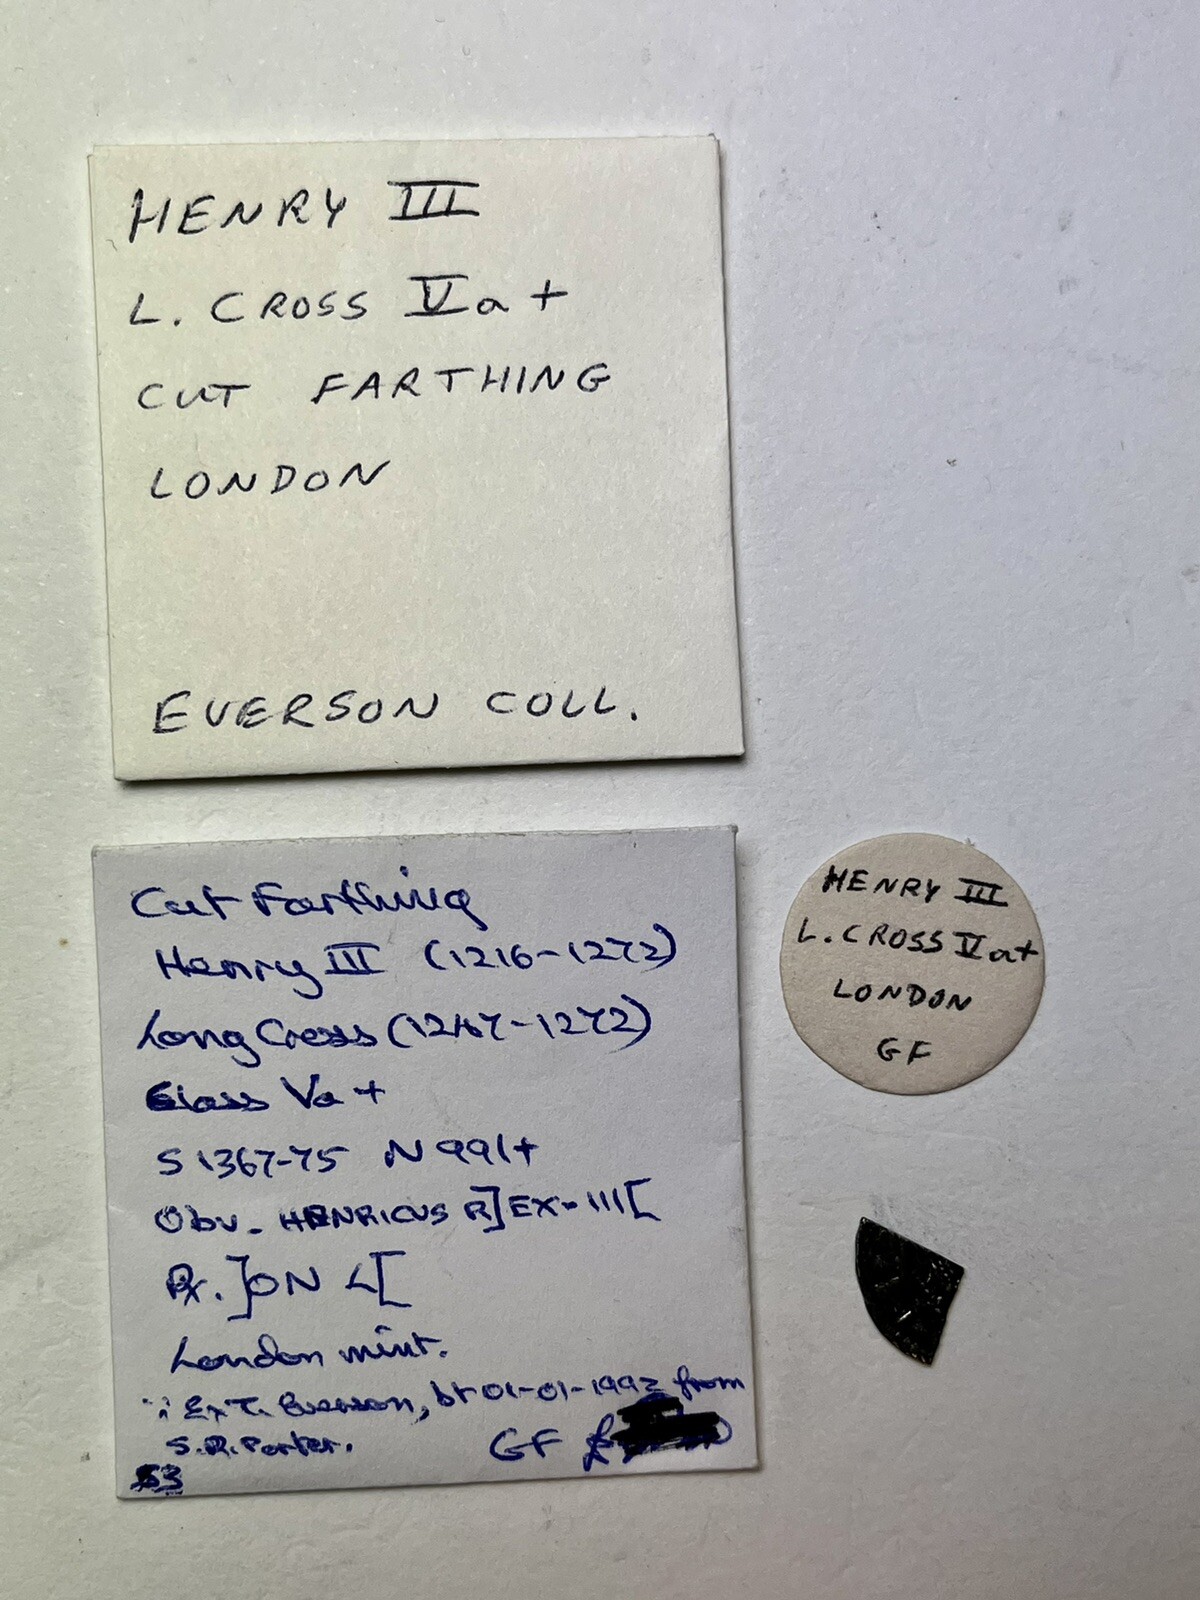 HENRY III
L. CROSS Va +
CUT FARTHING
LONDON
EVERSON COLL.
Cut Farthing
Henry III (1216-1272)
Long Cross (1247-1272)
Class Va +
S 1367-75 N 991+
Obv. HENRICUS R]EX-III[
Rx. ]ON L[
London mint.
Ex T. Everson, bt 01-01-1992 from
S.R. Porter.
GF £
53
HENRY III
L. CROSS Va+
LONDON
GF